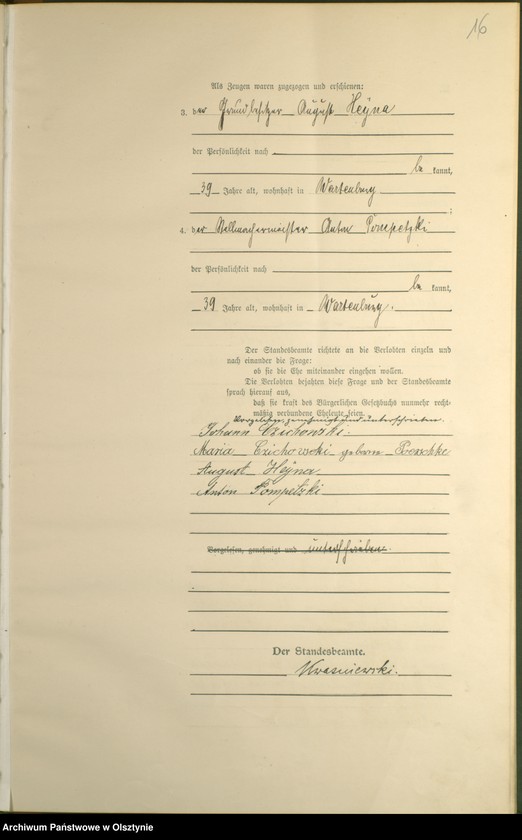 16
Als Zeugen waren zugezogen und erschienen:
3. der Grundbesitzer August Heÿna
der Persönlichkeit nach
be kannt,
39 Jahre alt, wohnhaft in Wartenburg
;
4. der Stellmachermeister Anton Pompetzki
der Persönlichkeit nach
be kannt,
39 Jahre alt, wohnhaft in Wartenburg.
Der Standesbeamte richtete an die Verlobten einzeln und
nach einander die Frage:
ob sie die Ehe miteinander eingehen wollen.
Die Verlobten bejahten diese Frage und der Standesbeamte
sprach hierauf aus,
daß sie kraft des Bürgerlichen Gesetzbuchs nunmehr recht-
mäßig verbundene Eheleute seien.
Vorgelesen, genehmigt und unterschrieben.
Johann Czichowski.
Maria Czichowski geborn
August Heÿna
Anton Pompetzki
Vorgelesen, genehmigt und unterschrieben.
Der Standesbeamte.
Kwasniewski.
Archiwum Państwowe w Olsztynie